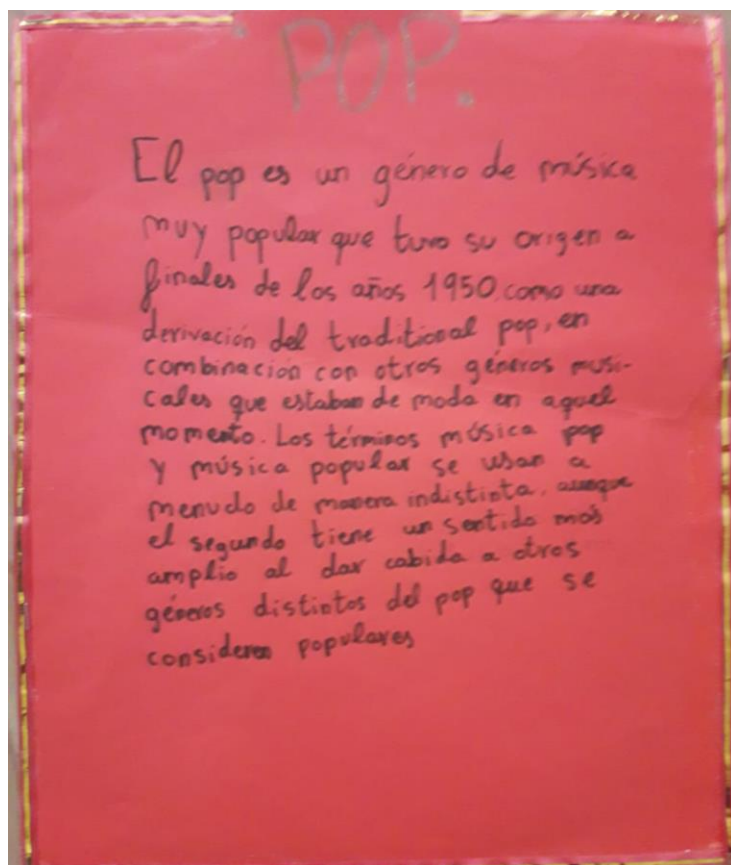 POP.
El pop es un género de música
muy popular que tuvo su origen a
finales de los años 1950, como una
derivación del traditional pop, en
combinación con otros géneros musi-
cales que estaban de moda en aquel
momento. Los términos música pop
y música popular se usan a
menudo de manera indistinta, aunque
el segundo tiene un sentido más
amplio al dar cabida a otros
géneros distintos del pop que se
consideren populares